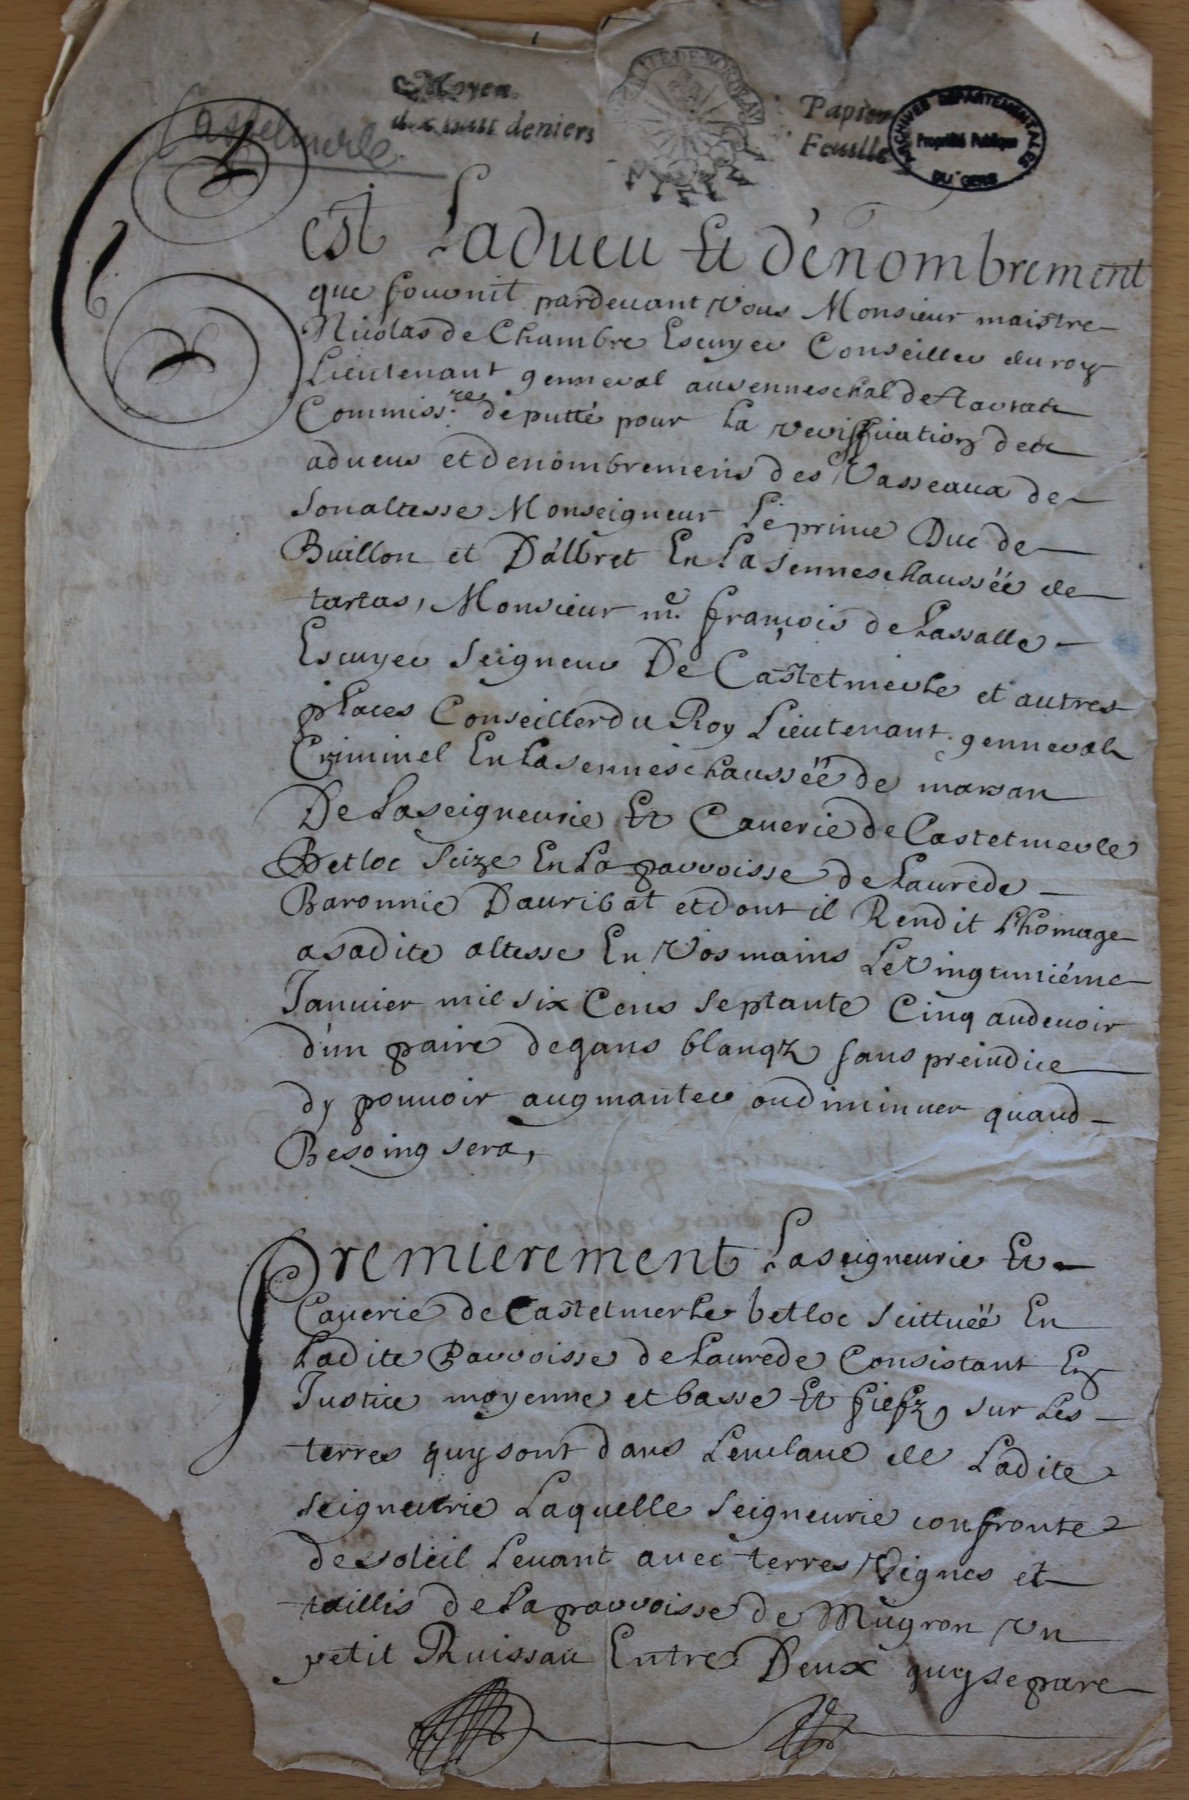 Castelmerle.
Moyen
dix huit deniers
Papier
Feuille
ARCHIVES DEPARTEMENTALES
Propriété Publique
DU GERS
Cest Ladueu Et dénombrement
que fournit pardeuant Vous Monsieur maistre
Nicolas de Chambre Escuyer Conseiller du roy
Lieutenant genneral au senneschal de
Commiss.res députté pour La veriffication des
adueus et denombremens des Vasseaux de
son altesse Monseigneur Le prince Duc de
Buillon et D'albret En La senneschaussée de
tartas, Monsieur me. françois de Lassalle
Escuyer Seigneur De Castetmerle et autres
places Conseiller du Roy Lieutenant genneral
Criminel En La senneschaussée de marsan
De La seigneurie Et Cauerie de Castetmerle
Betloc Scize En La parroisse de Laurede
Baronnie Dauribat et dont il Rendit L'homage
a sadite altesse En Vos mains Le Vingtuniéme
Januier mil six Cens Septante Cinq au deuoir
d'un paire de gans blanqz sans preiudice
dy pouuoir augmanter ou diminuer quand
Besoing sera,
Premierement La seigneurie Et
Cauerie de Castetmerle betloc scittuée En
Ladite Parroisse de Laurede Consistant En
Justice moyenne et basse Et fiefz, sur Les
terres quy sont dans Lenclaue de Ladite
seigneurie Laquelle Seigneurie confronte
de soleil Leuant auec terres Vignes et
taillis de La parroisse de Mugron Vn
petit Ruissau Entre Deux quy separe